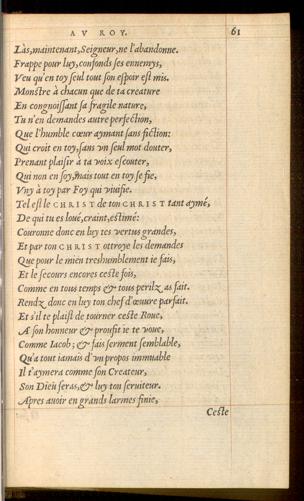 AV ROY. 61
Làs, maintenant, Seigneur, ne l'abandonne.
Frappe pour luy, confonds ses ennemys,
Veu qu'en toy seul tout son espoir est mis.
Monstre à chacun que de ta creature
En congnoissant sa fragile nature,
Tu n'en demandes autre perfection,
Que l'humble cœur aymant sans fiction:
Qui croit en toy, sans vn seul mot douter,
Prenant plaisir à ta voix escouter,
Qui non en soy, mais tout en toy se fie,
Vny à toy par Foy qui viuifie.
Tel est le CHRIST de ton CHRIST tant aymé,
De qui tu es loué, craint, estimé:
Couronne donc en luy tes vertus grandes,
Et par ton CHRIST ottroye les demandes
Que pour le mien treshumblement ie fais,
Et le secours encores ceste fois,
Comme en tous temps & tous perilz as fait.
Rendz donc en luy ton chef d'œuure parfait.
Et s'il te plaist de tourner ceste Roue,
A son honneur & proufit ie te voue,
Comme Iacob; & fais serment semblable,
Qu'a tout iamais d'vn propos immuable
Il t'aymera comme son Createur,
Son Dieu seras, & luy ton seruiteur.
Apres auoir en grands larmes finie,
Ceste